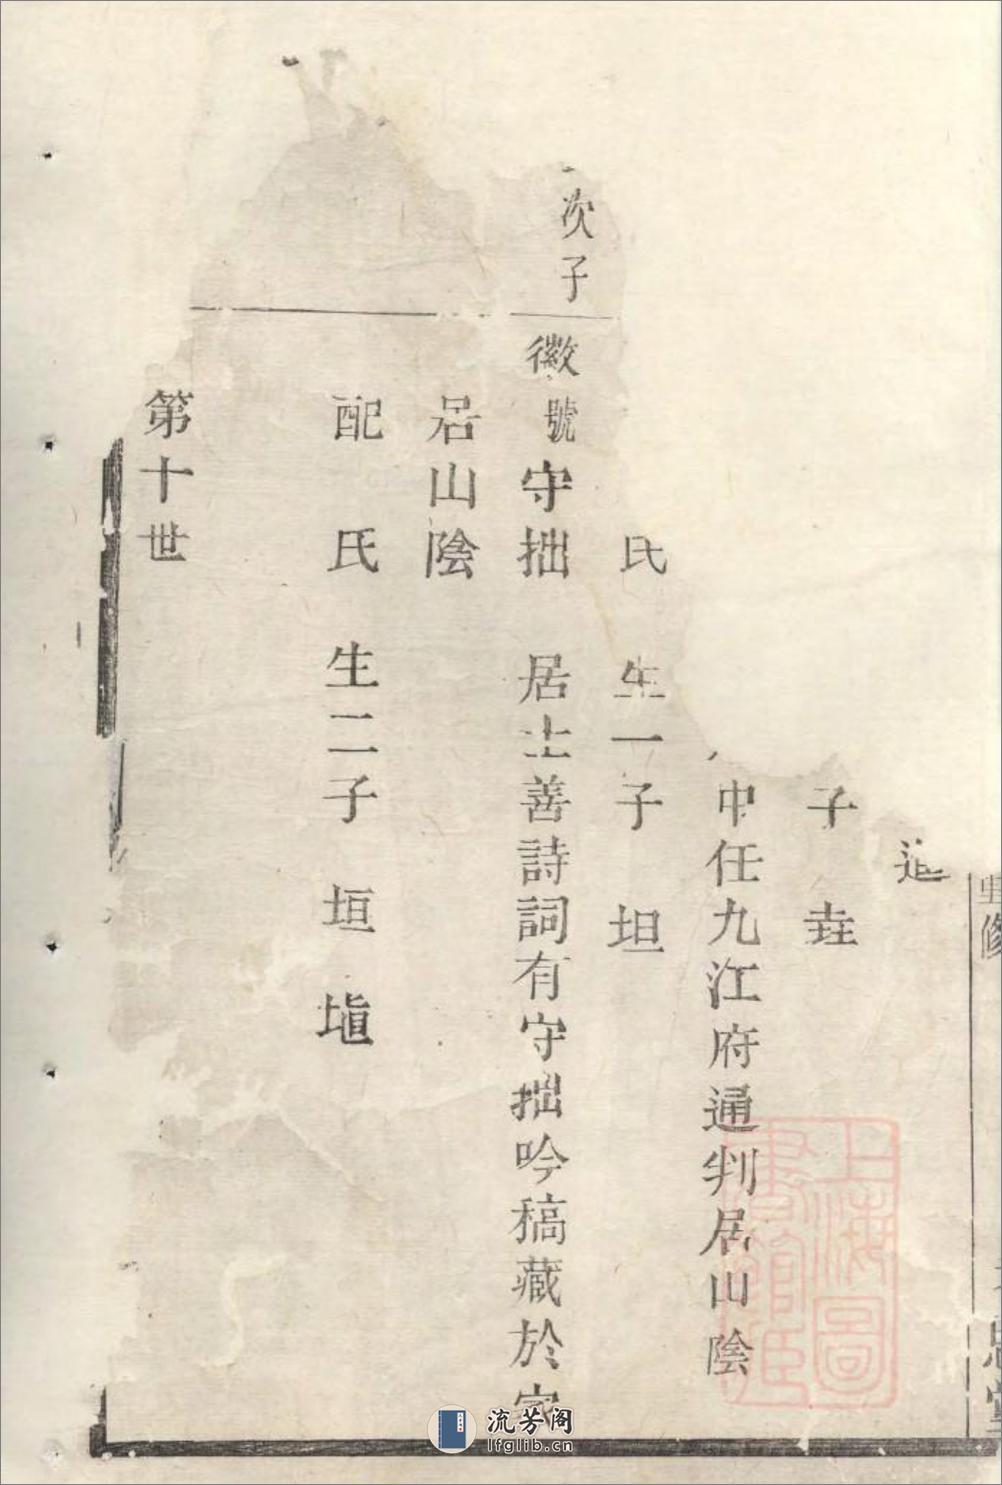 重修
思堂
子 垚
中任九江府通判居山陰
氏 生一子 坦
次子
徽號守拙 居士善詩詞有守拙吟稿藏於家
居山陰
配 氏 生二子 垣 塡
第十世
上海圖
書館藏
流芳阁
lfglib.cn